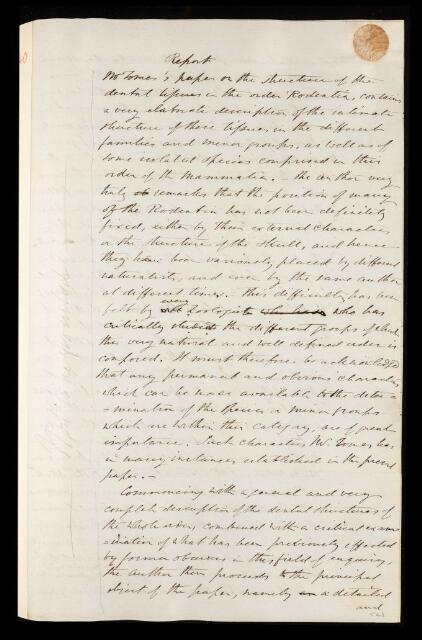 Report
Mr Tomes's paper on the structure of the
dental tissues in the order Rodentia, contains
a very elaborate description of the intimate
structure of these tissues, in the different
families and minor groups, as well as of
some isolated species comprised in this
order of the Mammalia. - The author very
truly remarks that the position of many
of the Rodentia has not been definitely
fixed, either by their external characters
or the structure of the skull, and hence
they have been variously placed by different
naturalists, and even by the same author
at different times. This difficulty has been
felt by every zoologist who has
critically the different groups of which
this very natural and well defined order is
composed. It must therefore be acknowledged
that any permanent and obvious characters
which can be made available to the deter-
=mination of the species or minor groups
which are within this category, are of great
importance. Such characters Mr Tomes has
in many instances established in the present
paper. -
Commencing with a general and very
complete description of the dental structures of
the whole order, combined with a critical exam-
=ination of what has been previously effected
by former observers in this field of enquiry,
the author then proceeds to the principal
object of the paper, namely a detailed
and